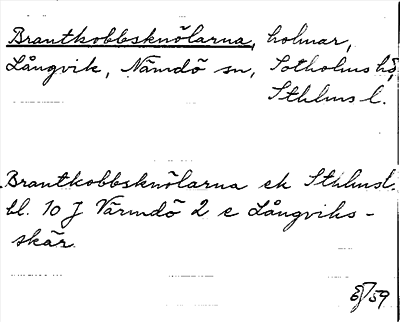 Brantkobbsknölarna, holmar,
Långvik, Nämdö sn, Sotholms hd,
Sthlms l.
Brantkobbsknölarna ek Sthlmsl.
bl. 10 J Värmdö 2 c Långviks-
skär.
EJ/59